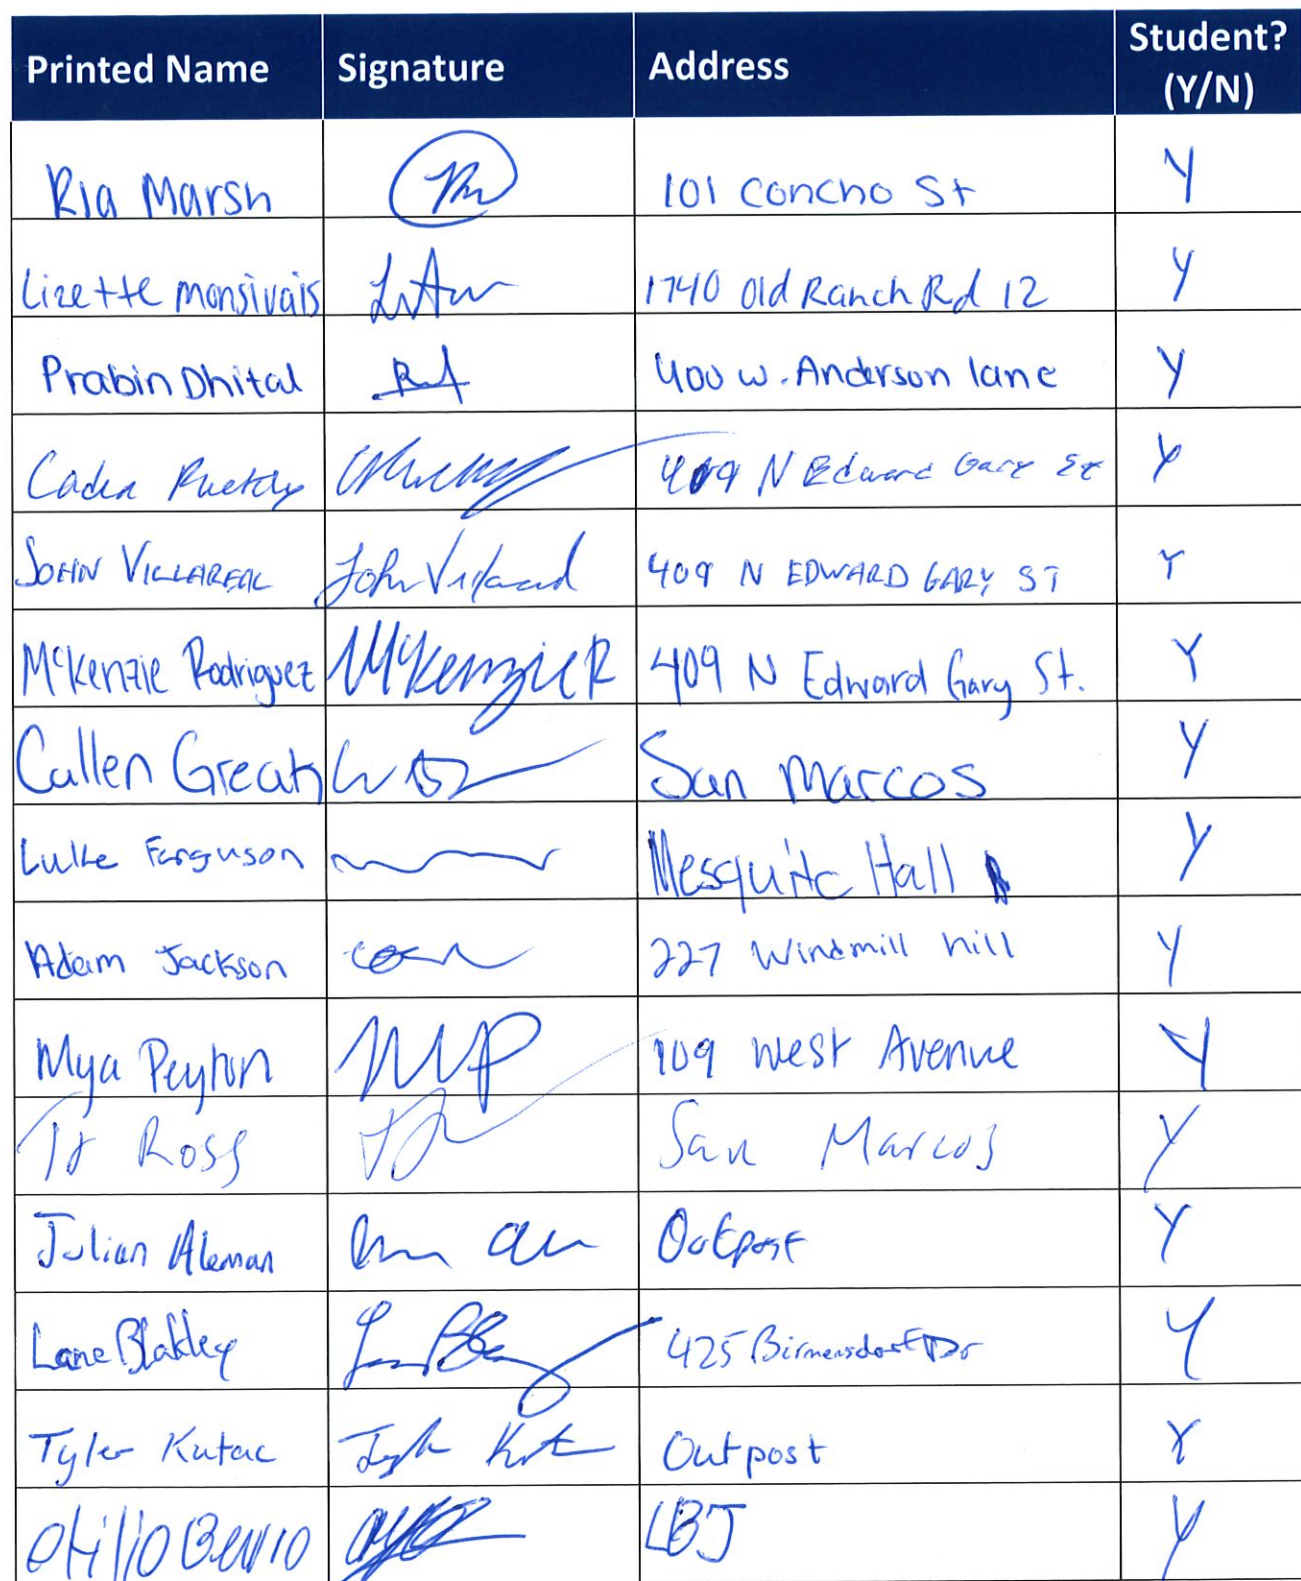 Printed Name Signature Address Student? (Y/N)
Ria Marsh 101 Concho St Y
Lizette monsivais 1740 Old Ranch Rd 12 Y
Prabin Dhital 400 w. Anderson lane Y
409 N Edward Gary St Y
JOHN VILLAREAL John Villareal 409 N EDWARD GARY ST Y
McKenzie Rodriguez McKenzie R 409 N Edward Gary St. Y
Cullen San Marcos Y
Luke Ferguson Mesquite Hall Y
Adam Jackson 227 Windmill hill Y
Mya Peyton MP 109 West Avenue Y
Ross San Marcos Y
Julian Aleman Outpost Y
Lane Blakley 425 Dr Y
Tyler Kutac Outpost Y
LBJ Y